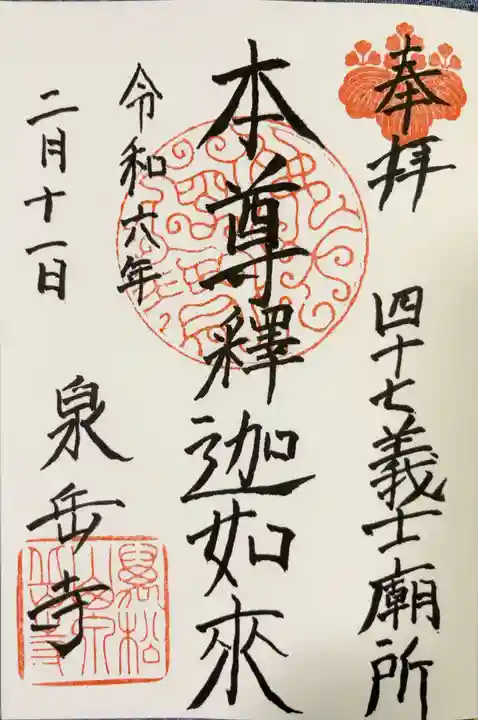 奉拝
四十七義士廟所
本尊釋迦如來
令和六年
二月十一日
泉岳寺
萬松山泉岳寺